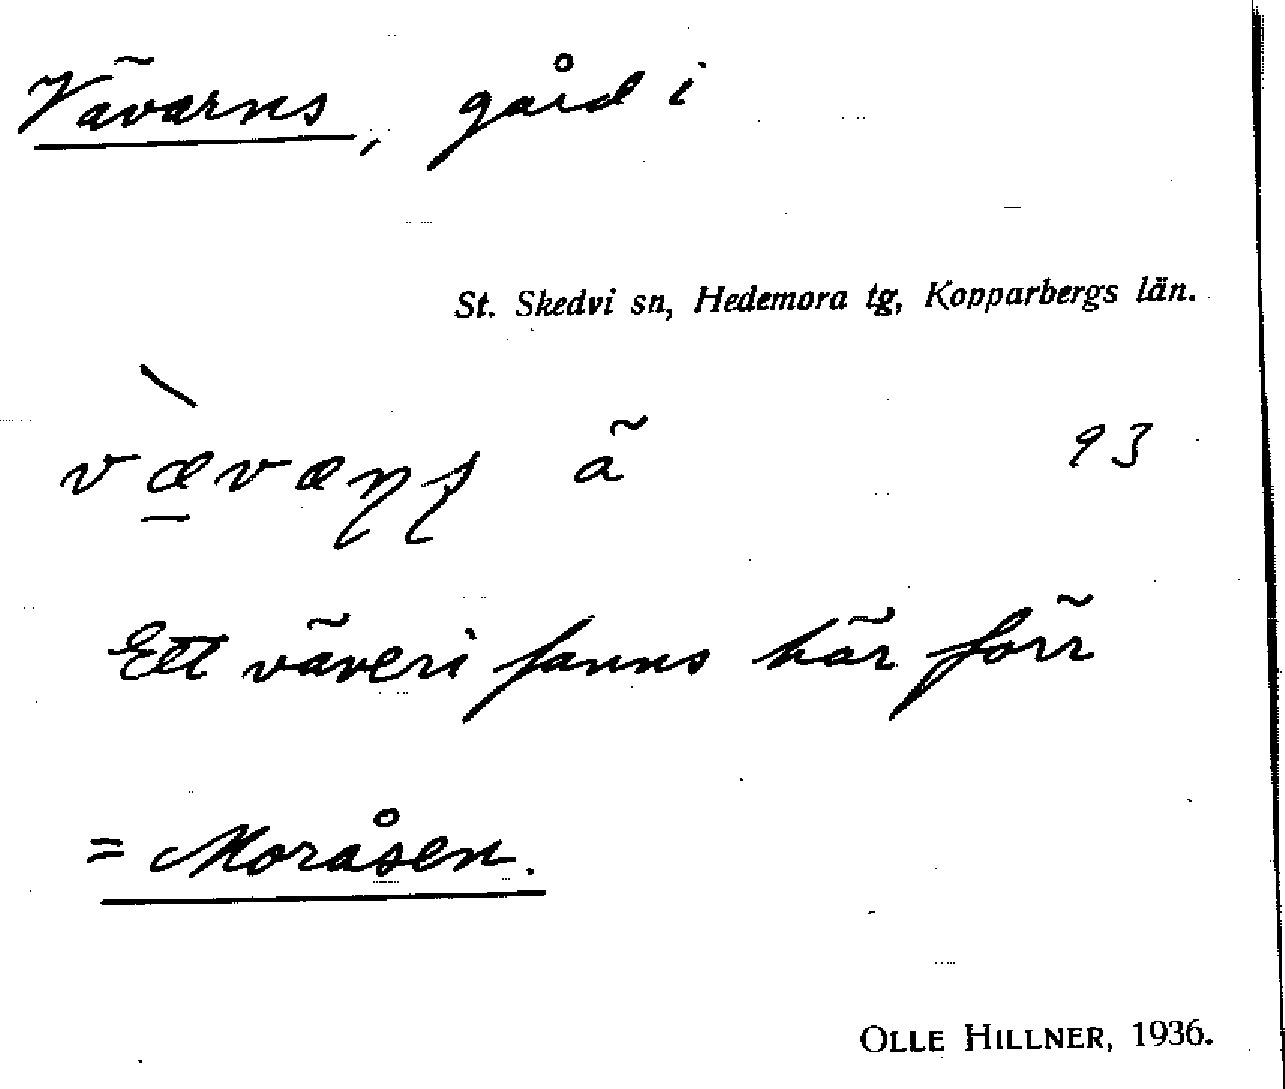 Vävarns, gård i
St. Skedvi sn, Hedemora tg, Kopparbergs län.
vævæɳʂ ä 93
Ett väveri fanns här förr
= Moråsen.
OLLE HILLNER, 1936.